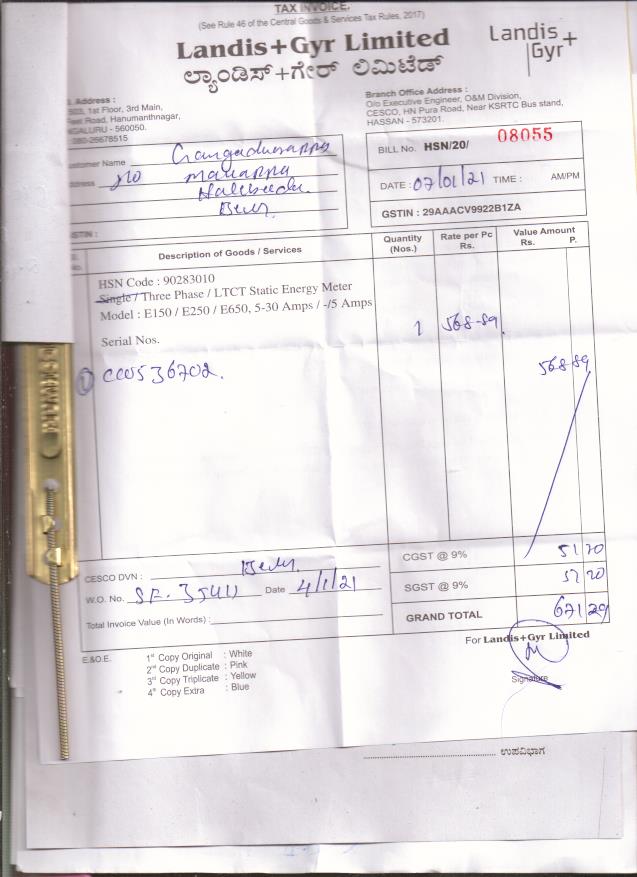 TAX INVOICE.
(See Rule 46 of the Central Goods & Services Tax Rules, 2017)
Landis+Gyr Limited
ಲ್ಯಾಂಡಿಸ್+ಗೇರ್ ಲಿಮಿಟೆಡ್
Landis
Gyr+
Address :
1st Floor, 3rd Main,
Road, Hanumanthnagar,
- 560050.
080-26678515
Branch Office Address :
O/o Executive Engineer, O&M Division,
CESCO, HN Pura Road, Near KSRTC Bus stand,
HASSAN - 573201.
Customer Name
Address
Halebeedu
BILL No. HSN/20/ 08055
DATE : 07/01/21 TIME : AM/PM
GSTIN : 29AAACV9922B1ZA
GSTIN :
No. Description of Goods / Services Quantity (Nos.) Rate per Pc Rs. Value Amount Rs. P.
HSN Code : 90283010
Single / Three Phase / LTCT Static Energy Meter
Model : E150 / E250 / E650, 5-30 Amps / -/5 Amps
Serial Nos. 1 568-89
1 568-89
CESCO DVN :
W.O. No. Date 4/1/21
Total Invoice Value (In Words) :
CGST @ 9% 51 20
SGST @ 9% 51 20
GRAND TOTAL 671 29
For Landis+Gyr Limited
Signature
E.&O.E.
1st Copy Original : White
2nd Copy Duplicate : Pink
3rd Copy Triplicate : Yellow
4th Copy Extra : Blue
ಉಪವಿಭಾಗ